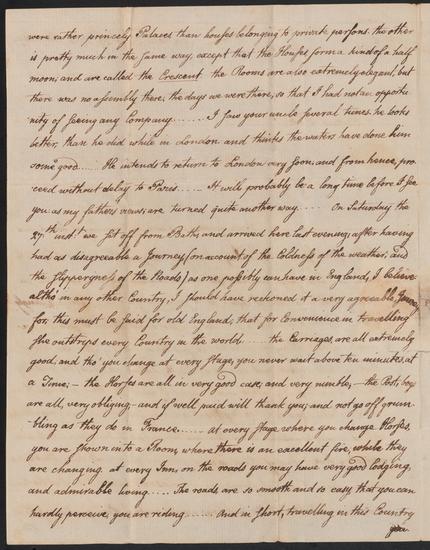 were rather princely Palaces than houses belonging to private persons. the other
is pretty much in the same way, except that the Houses form a kind of a half
moon; and are called the Crescent. the Rooms are also extremely elegant, but
there was no assembly there, the days we were there, so that I had not an opportu-
nity of seeing any Company...... I saw your uncle several times, he looks
better, than he did while in London and thinks the waters have done him
some good.... He intends to return to London very soon, and from hence, pro-
ceed without delay to Paris..... It will probably be a long time before I see
you as my fathers views, are turned quite another way.... On Saturday the
27.th inst.t we set off from Bath, and arrived here last evening; after having
had as disagreeable a Journey (on account of the Coldness of the weather; and
the slipperyness of the Roads) as one possibly can have in England, I believe
altho in any other Country, I should have reckoned it a very agreeable Jour
for, this must be said for old England, that for Convenience in travelling
she outstrips every Country in the world..... the Carriages, are all extremely
good, and tho' you change at every Stage, you never wait above ten minutes, at
a Time; — the Horses are all in very good case, and very nimble, — the Post, boys
are all, very obliging, — and if well paid will thank you; and not go off grum-
bling as they do in France..... at every Stage where you change Horses,
you are shown into a Room, where there is an excellent fire, while they
are changing. at every Inn, on the roads you may have very good lodging,
and admirable living.... The roads, are so smooth and so easy, that you can
hardly perceive, you are riding..... And in short, travelling in this Country